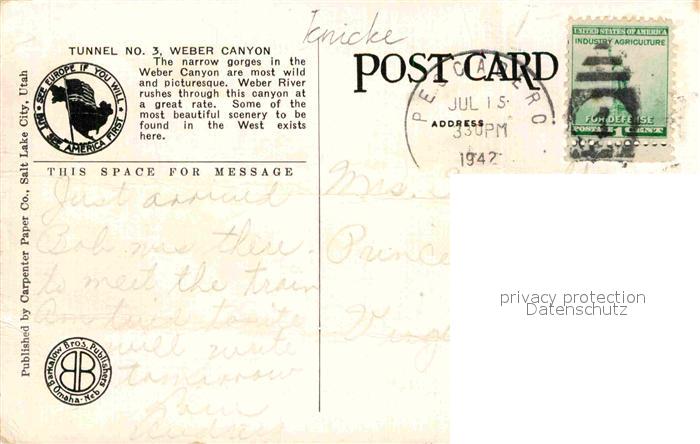 Jenicke
TUNNEL NO. 3, WEBER CANYON
The narrow gorges in the
Weber Canyon are most wild
and picturesque. Weber River
rushes through this canyon at
a great rate. Some of the
most beautiful scenery to be
found in the West exists
here.
SEE EUROPE IF YOU WILL
BUT SEE AMERICA FIRST
THIS SPACE FOR MESSAGE
Just arrived
Bob was there
to meet the train
will write
tomorrow
Published by Carpenter Paper Co., Salt Lake City, Utah
Barkalow Bros. Publishers
Omaha-Neb
B B
POST CARD
ADDRESS
PESCADERO
JUL 15
330PM
1942
UNITED STATES OF AMERICA
INDUSTRY AGRICULTURE
FOR DEFENSE
POSTAGE 1 CENT
Mrs.
Prince
privacy protection
Datenschutz